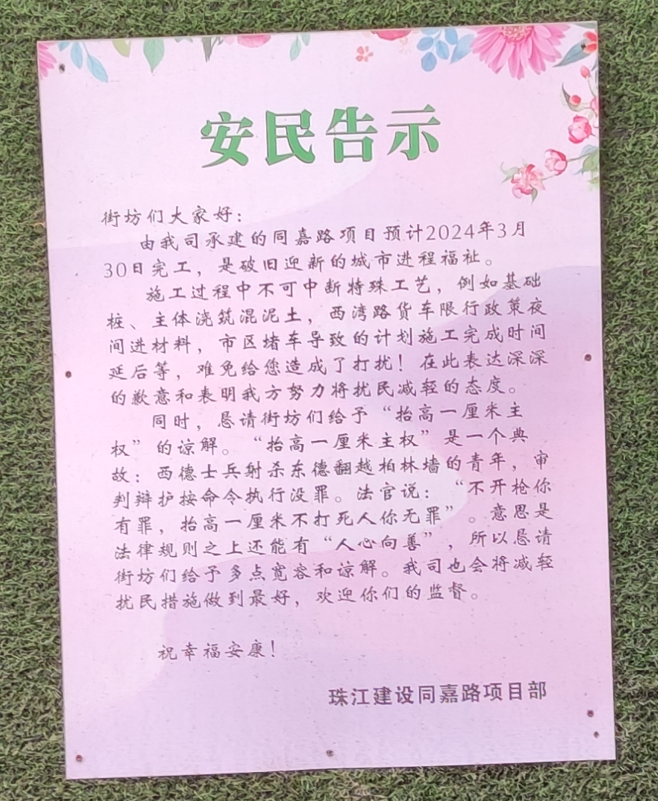 安民告示
街坊们大家好：
由我司承建的同嘉路项目预计2024年3月
30日完工，是破旧迎新的城市进程福祉。
施工过程中不可中断特殊工艺，例如基础
桩、主体浇筑混泥土，西湾路货车限行政策夜
间进材料，市区堵车导致的计划施工完成时间
延后等，难免给您造成了打扰！在此表达深深
的歉意和表明我方努力将扰民减轻的态度。
同时，恳请街坊们给予“抬高一厘米主
权”的谅解。“抬高一厘米主权”是一个典
故：西德士兵射杀东德翻越柏林墙的青年，审
判辩护按命令执行没罪。法官说：“不开枪你
有罪，抬高一厘米不打死人你无罪”。意思是
法律规则之上还能有“人心向善”，所以恳请
街坊们给予多点宽容和谅解。我司也会将减轻
扰民措施做到最好，欢迎你们的监督。
祝幸福安康！
珠江建设同嘉路项目部